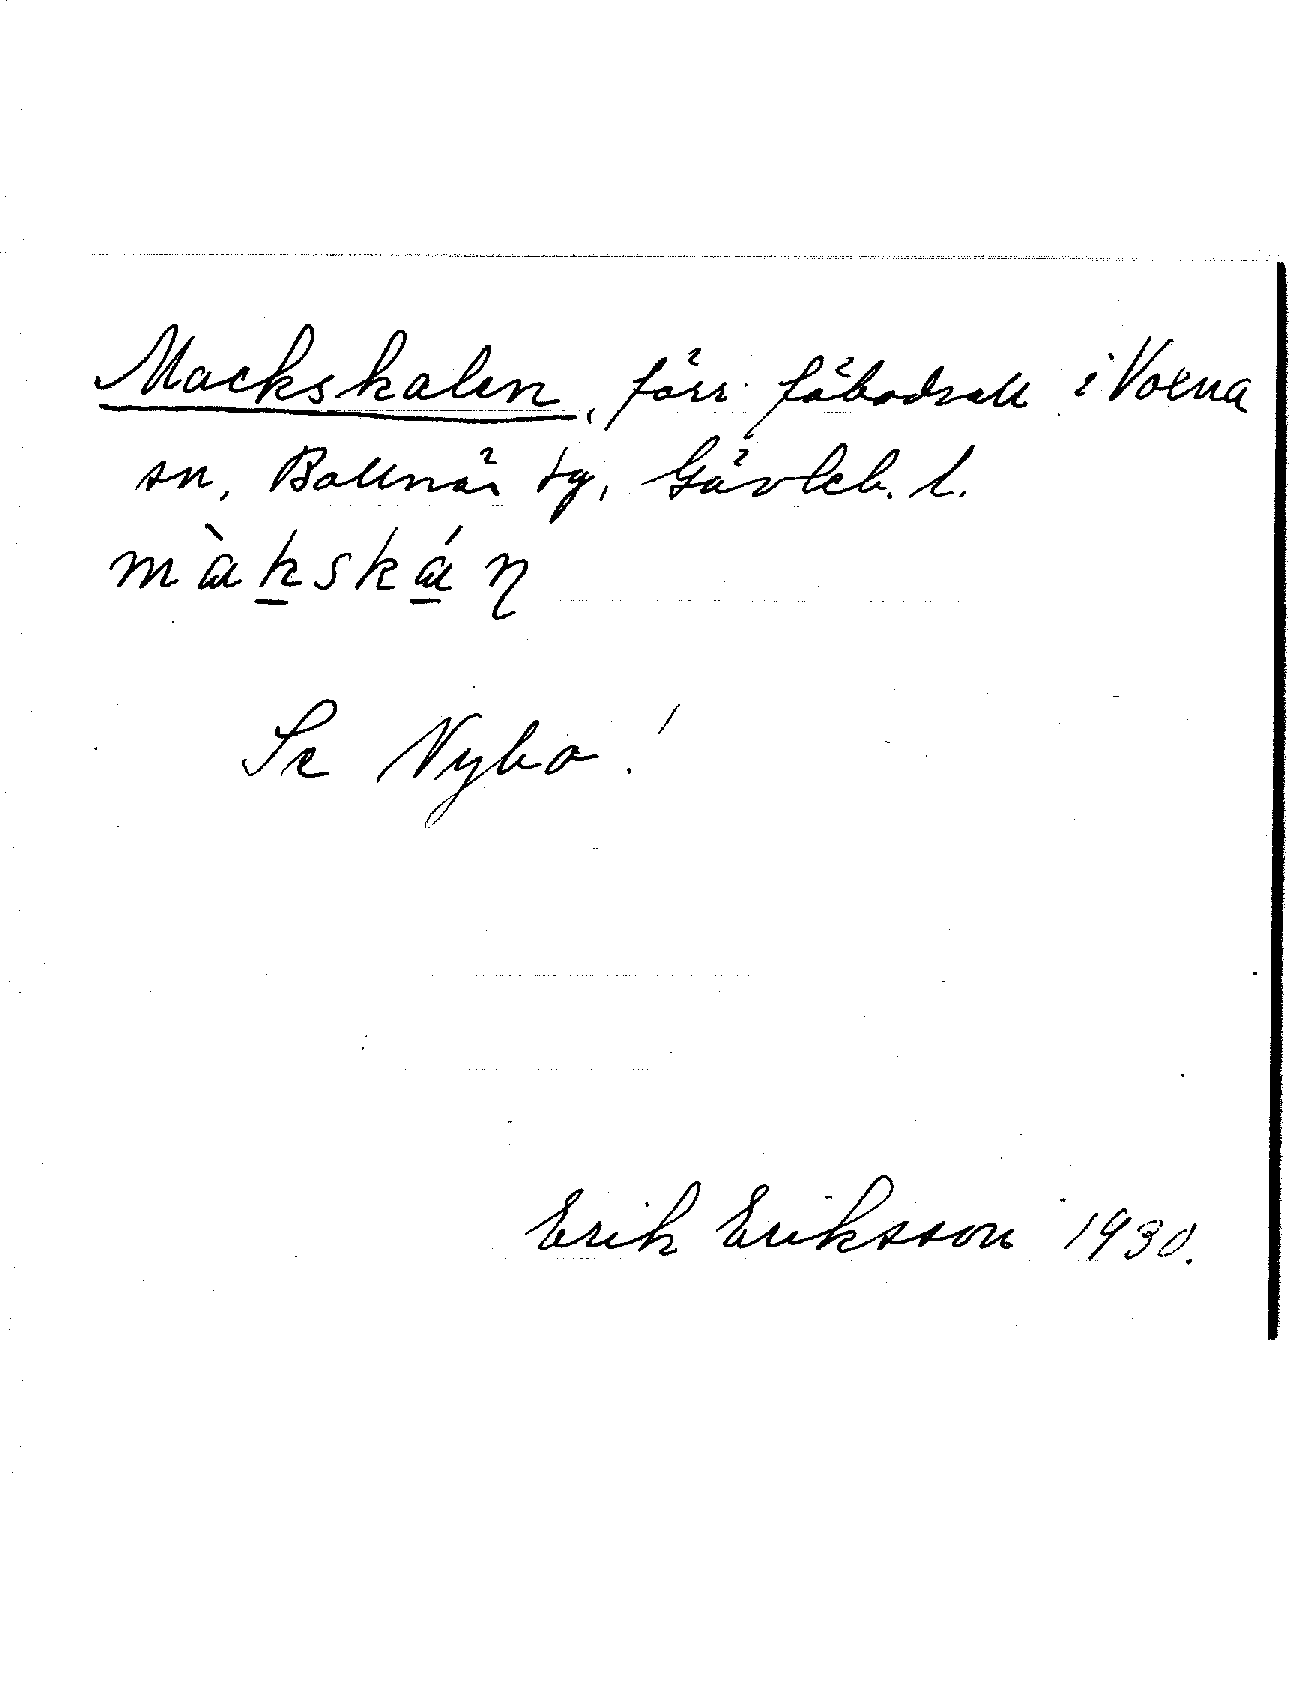 Mackskalen, förr fäbodvall i Voxna
sn, Bollnäs tg, Gävleb. l.
màkskán
Se Nybo!
Erik Eriksson 1930.